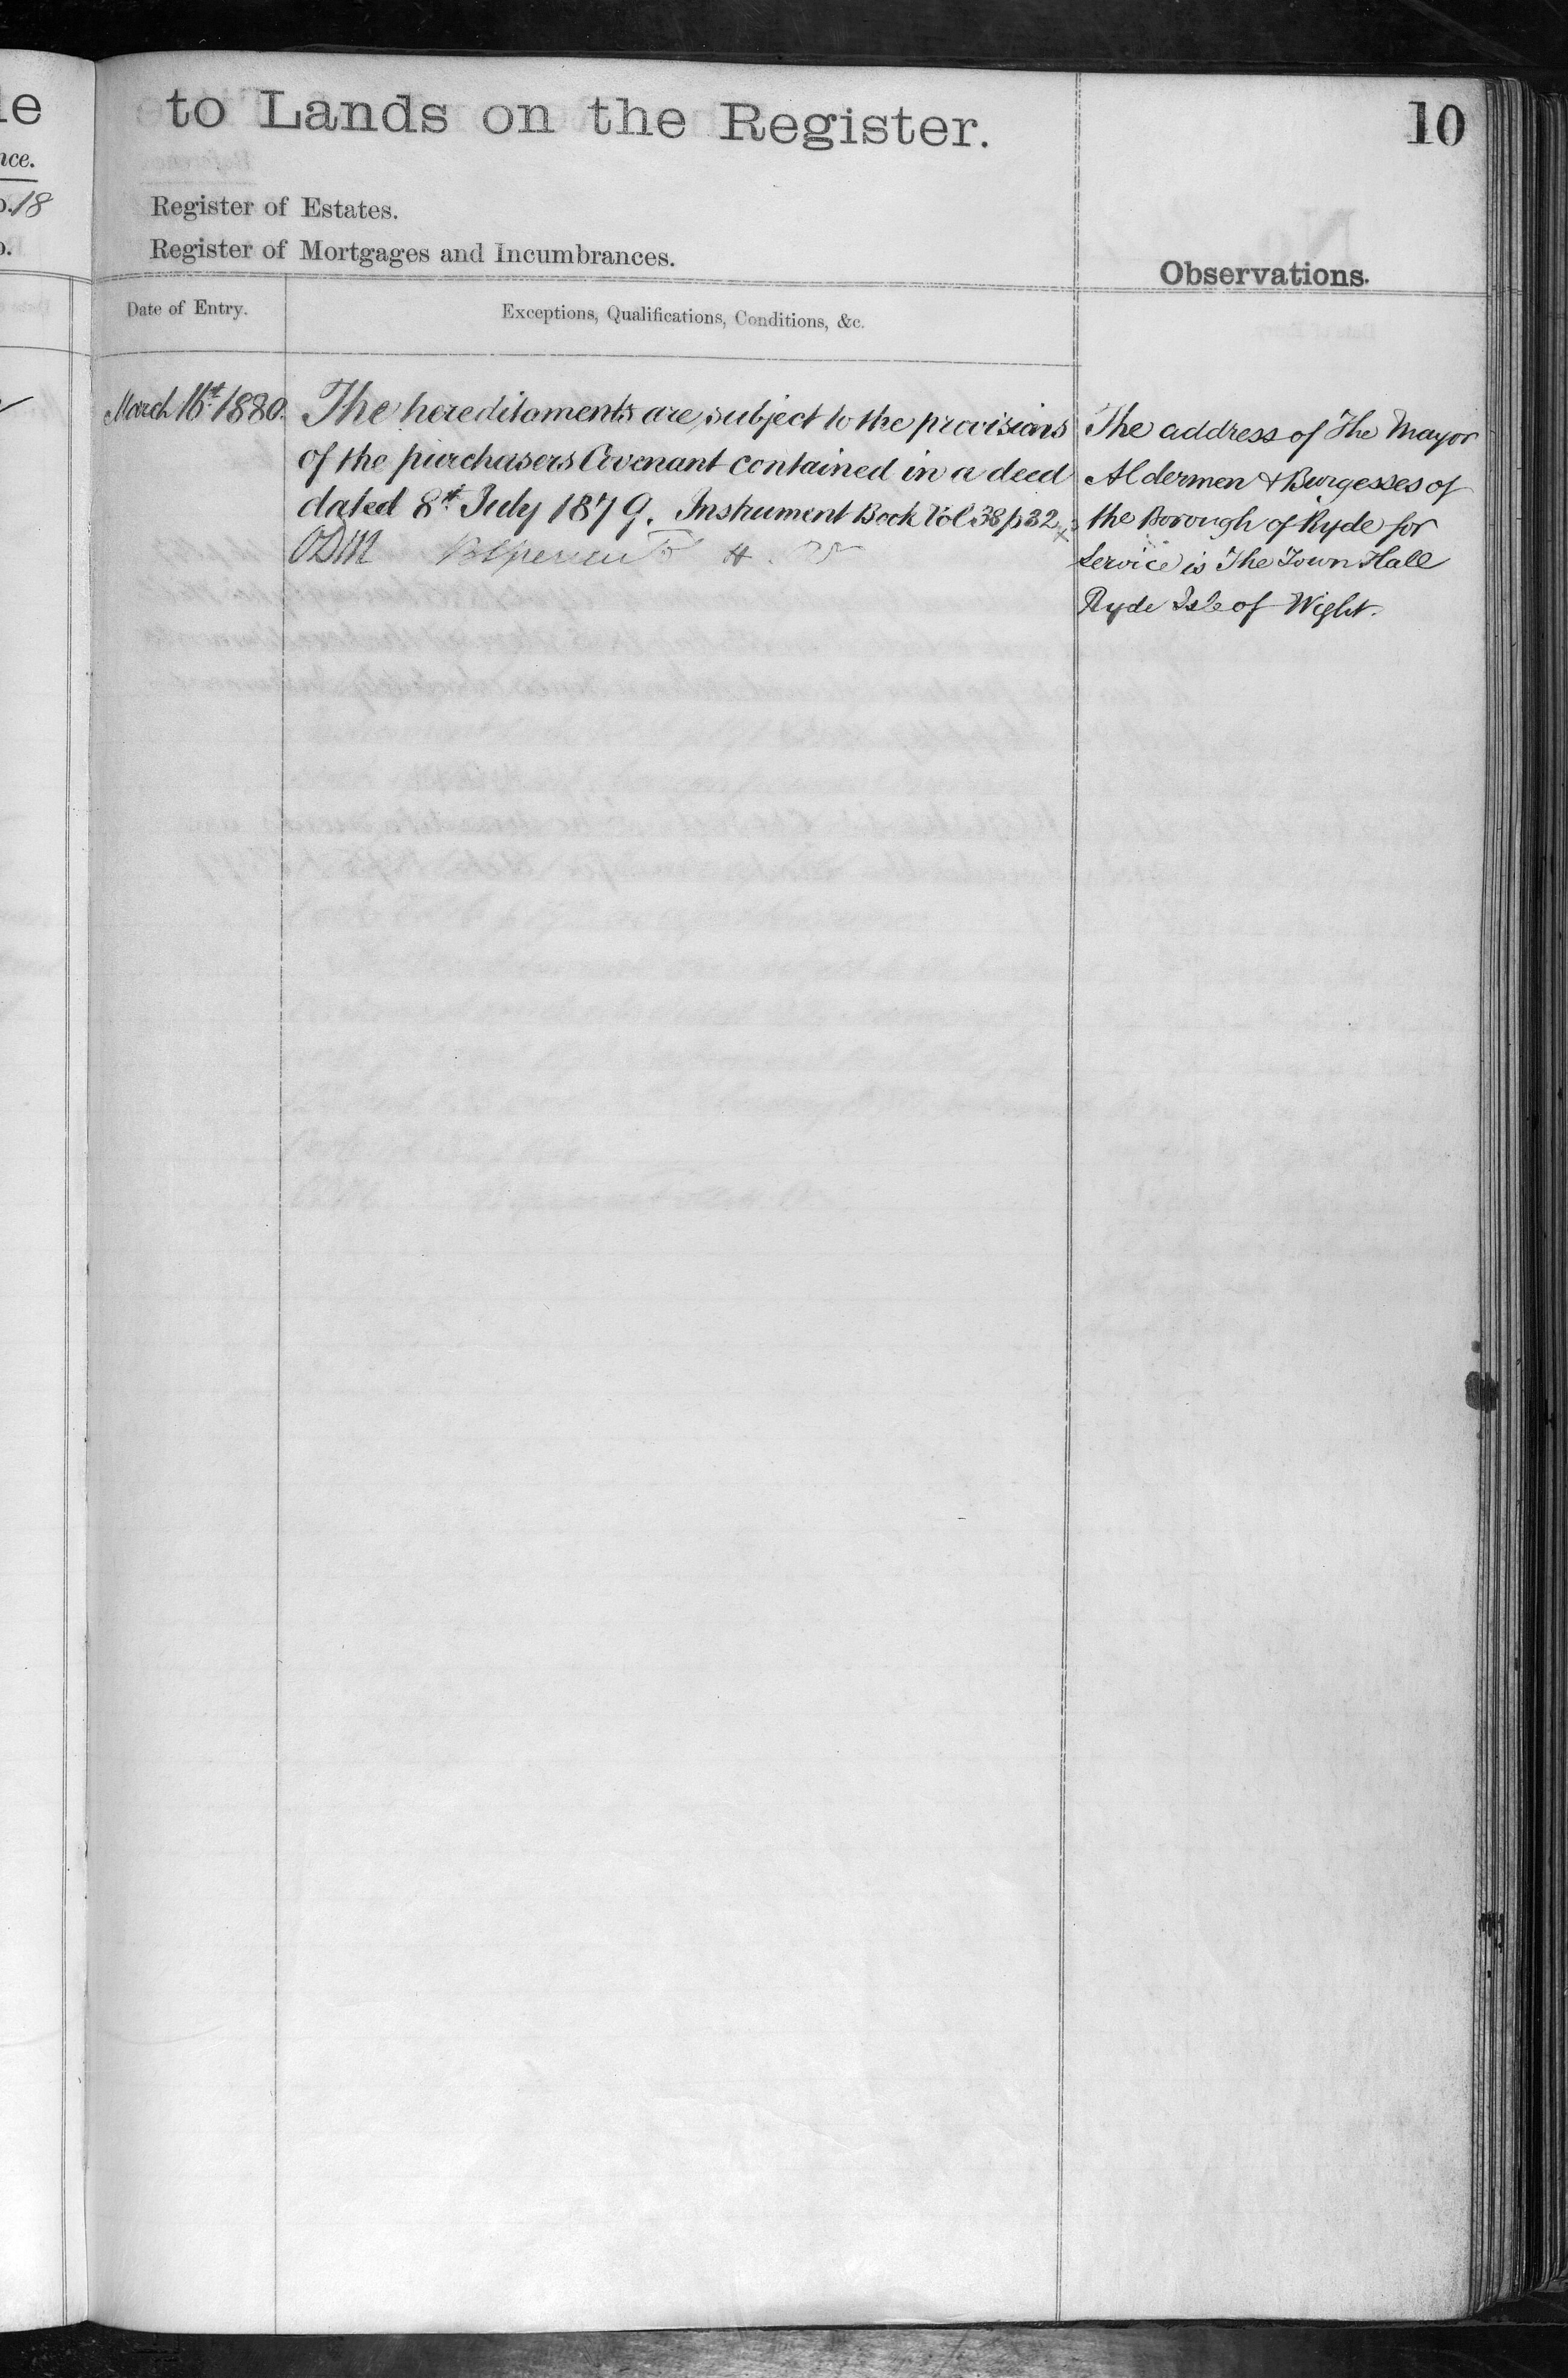 le
nce.
18
to Lands on the Register.
10
Register of Estates.
Register of Mortgages and Incumbrances.
Observations.
Date of Entry.
Exceptions, Qualifications, Conditions, &c.
March 1880.
The hereditaments are subject to the provisions
of the purchasers Covenant contained in a deed
dated 8th July 1879. Instrument Book Vol 38 p32
ODM
The address of The Mayor
Aldermen & Burgesses of
the Borough of Ryde for
service is The Town Hall
Ryde Isle of Wight.